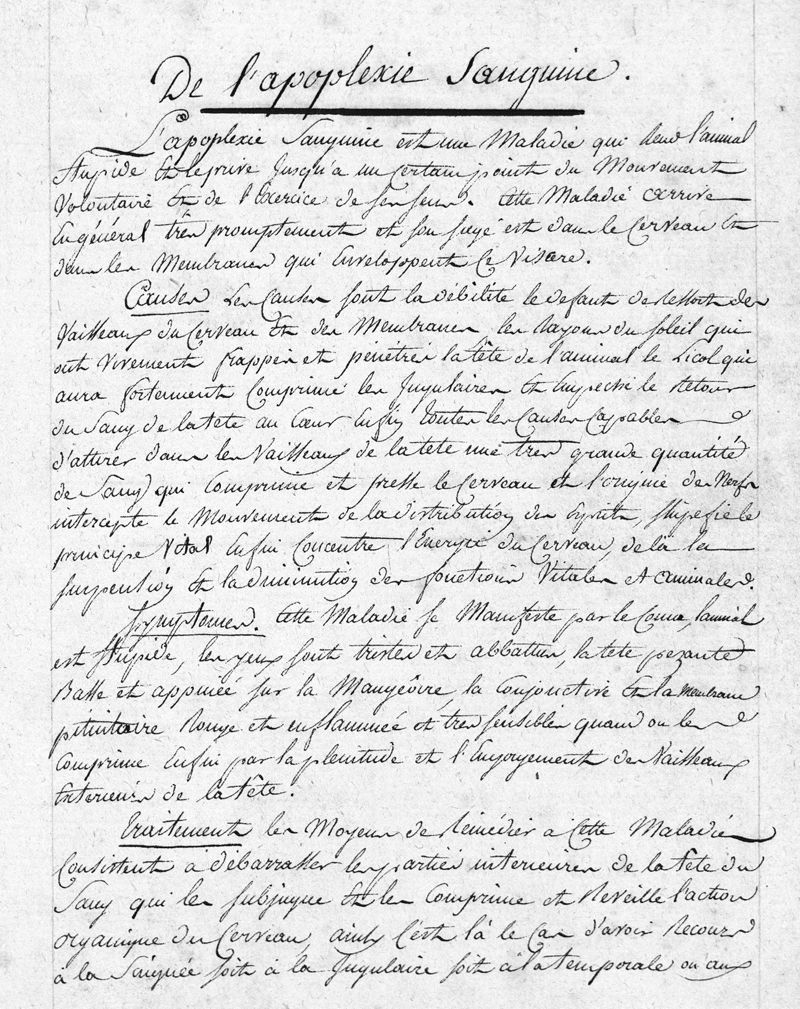 De l'apoplexie Sanguine.
L'apoplexie Sanguine est une Maladie qui Rend l'animal
Stupide Et le prive Jusqu'a un Certain point du Mouvement
Volontaire Et de l'Exercice de ses sens. Cette Maladie arrive
En général très promptement et son siege est dans le Cerveau Et
dans les Membranes qui Enveloppent Ce Viscere.
Causes Les Causes sont la débilité le defaut de ressort des
Vaisseaux du Cerveau Et des Membranes, les Rayons du Soleil qui
ont Vivement frappés et pénétrés la tête de l'animal le Licol qui
aura fortement Comprimé les Jugulaires Et Empeché le Retour
du Sang de la tete au Cœur Enfin toutes les Causes Capables
d'attirer dans les Vaisseaux de la tete une tres grande quantité
de Sang qui Comprime et presse le Cerveau et l'origine des Nerfs
intercepte le Mouvement de la distribution des Esprits, stupefie le
principe Vital Enfin Concentre l'Energie du Cerveau, de là la
suspention Et la diminution des fonctions Vitales et animales.
Symptomes. Cette Maladie se Manifeste par le Coma, lanimal
est Stupide, les yeux sont tristes et abbattus, la tete pezante
Basse et appuiée sur la Mangeoire, la Conjonctive Et la Membrane
pituitaire Rouge et enflammeé et tres sensibles quand on les
Comprime Enfin par la plenitude et l'Engorgement des Vaisseaux
Exterieurs de la tête.
Traitement les Moyens de Remédier a Cette Maladie
Consistent à débarrasser les parties interieures de la tête du
Sang qui les subjugue Et les Comprime et Reveille l'action
organique du Cerveau, ainsy C'est là le Cas d'avoir Recours
à la Saignée soit à la Jugulaire soit à la temporale ou aux